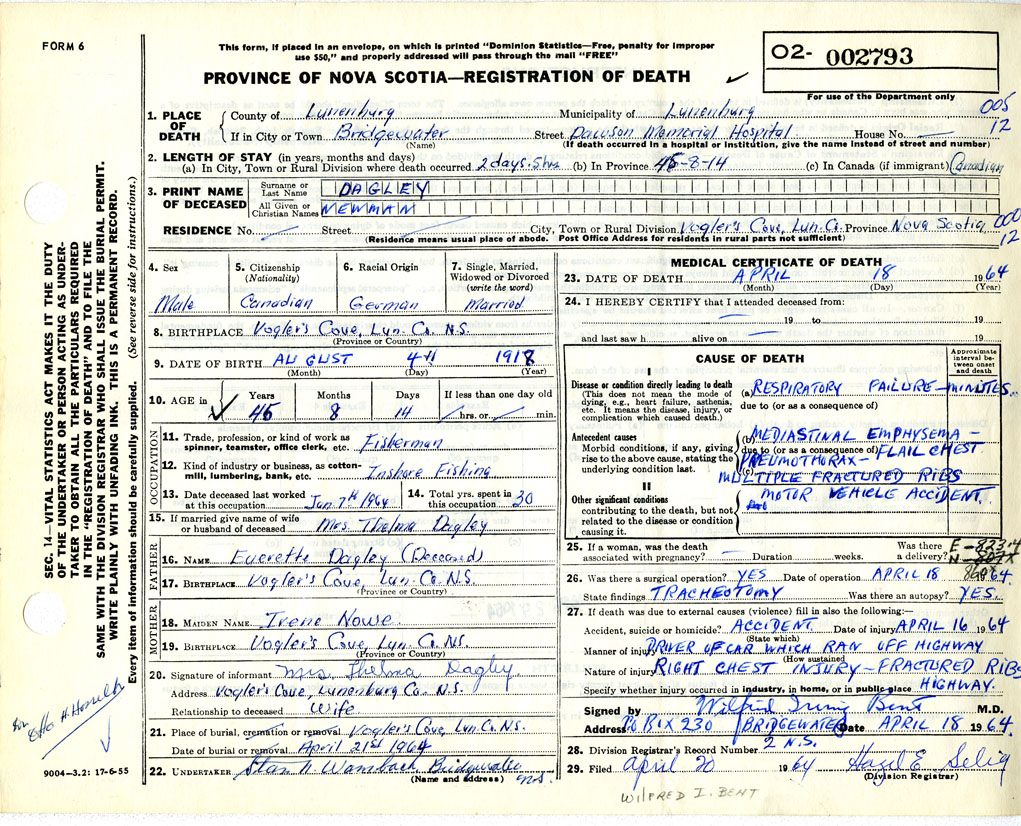 FORM 6
This form, if placed in an envelope, on which is printed "Dominion Statistics—Free, penalty for improper
use $50," and properly addressed will pass through the mail "FREE"
PROVINCE OF NOVA SCOTIA—REGISTRATION OF DEATH ✓
02- 002793
For use of the Department only
005
12
1. PLACE OF DEATH { County of Lunenburg Municipality of Lunenburg
If in City or Town Bridgewater Street Dawson Memorial Hospital House No.
(Name) (If death occurred in a hospital or institution, give the name instead of street and number)
2. LENGTH OF STAY (in years, months and days)
(a) In City, Town or Rural Division where death occurred 2 days. 5 hrs (b) In Province 45-8-14 (c) In Canada (if immigrant) Canadian
3. PRINT NAME OF DECEASED { Surname or Last Name DAGLEY
All Given or Christian Names NEWMAN
000
12
RESIDENCE No. Street City, Town or Rural Division Vogler's Cove, Lun. Co. Province Nova Scotia
(Residence means usual place of abode. Post Office Address for residents in rural parts not sufficient)
4. Sex
Male
5. Citizenship
(Nationality)
Canadian
6. Racial Origin
German
7. Single, Married,
Widowed or Divorced
(write the word)
Married
8. BIRTHPLACE Vogler's Cove, Lun. Co. N.S.
(Province or Country)
9. DATE OF BIRTH AUGUST 4th 1918
(Month) (Day) (Year)
10. AGE in ✓ Years Months Days If less than one day old
45 8 14 hrs. or min.
OCCUPATION
11. Trade, profession, or kind of work as
spinner, teamster, office clerk, etc. Fisherman
12. Kind of industry or business, as cotton-
mill, lumbering, bank, etc. Inshore Fishing
13. Date deceased last worked
at this occupation Jan 7th 1964
14. Total yrs. spent in
this occupation 30
15. If married give name of wife
or husband of deceased Mrs. Thelma Dagley
FATHER
16. NAME Everette Dagley (Deceased)
17. BIRTHPLACE Vogler's Cove, Lun. Co. N.S.
(Province or Country)
MOTHER
18. MAIDEN NAME Irene Nowe
19. BIRTHPLACE Vogler's Cove, Lun. Co. N.S.
(Province or Country)
20. Signature of informant Mrs. Thelma Dagley
Address Vogler's Cove, Lunenburg Co. N.S.
Relationship to deceased Wife
21. Place of burial, cremation or removal Vogler's Cove, Lun. Co. N.S.
Date of burial or removal April 21st 1964
22. UNDERTAKER Bridgewater N.S.
(Name and address)
MEDICAL CERTIFICATE OF DEATH
23. DATE OF DEATH APRIL 18 1964
(Month) (Day) (Year)
24. I HEREBY CERTIFY that I attended deceased from:
19 to 19
and last saw h alive on 19
CAUSE OF DEATH
Approximate
interval be-
tween onset
and death
I
Disease or condition directly leading to death
(This does not mean the mode of
dying, e.g., heart failure, asthenia,
etc. It means the disease, injury, or
complication which caused death.)
(a) RESPIRATORY FAILURE— MINUTES.
due to (or as a consequence of)
Antecedent causes
Morbid conditions, if any, giving
rise to the above cause, stating the
underlying condition last.
(b) MEDIASTINAL EMPHYSEMA —
due to (or as a consequence of) FLAIL CHEST
PNEUMOTHORAX—
(c) MULTIPLE FRACTURED RIBS
II
Other significant conditions
contributing to the death, but not
related to the disease or condition
causing it.
MOTOR VEHICLE ACCIDENT.
25. If a woman, was the death
associated with pregnancy? Duration weeks. Was there
a delivery?
26. Was there a surgical operation? YES Date of operation APRIL 18 64
State findings TRACHEOTOMY Was there an autopsy? YES.
27. If death was due to external causes (violence) fill in also the following:—
Accident, suicide or homicide? ACCIDENT Date of injury APRIL 16 1964
(State which)
Manner of injury DRIVER OF CAR WHICH RAN OFF HIGHWAY
(How sustained)
Nature of injury RIGHT CHEST INJURY—FRACTURED RIBS
Specify whether injury occurred in industry, in home, or in public place HIGHWAY.
Signed by Wilfred Irving Bent M.D.
Address PO BOX 230 BRIDGEWATER Date APRIL 18 1964.
2 N.S.
28. Division Registrar's Record Number
29. Filed April 20 1964 Hazel E. Selig
(Division Registrar)
WILFRED I. BENT
SEC. 14—VITAL STATISTICS ACT MAKES IT THE DUTY
OF THE UNDERTAKER OR PERSON ACTING AS UNDER-
TAKER TO OBTAIN ALL THE PARTICULARS REQUIRED
IN THE "REGISTRATION OF DEATH" AND TO FILE THE
SAME WITH THE DIVISION REGISTRAR WHO SHALL ISSUE THE BURIAL PERMIT.
WRITE PLAINLY WITH UNFADING INK. THIS IS A PERMANENT RECORD.
Every item of information should be carefully supplied. (See reverse side for instructions.)
9004-3.2: 17-6-55